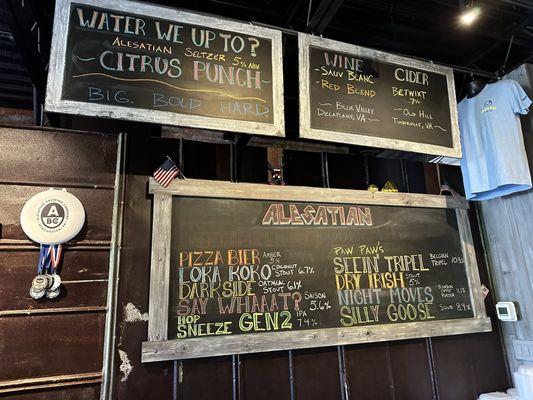 WATER WE UP TO?
ALESATIAN SELTZER 5% ABV
CITRUS PUNCH
BIG. BOLD HARD
WINE
SAUV BLANC
RED BLEND
BLUE VALLEY
DELAPLANE, VA
CIDER
BETWIXT
7%
OLD HILL
TIMBERVILLE, VA
ALESATIAN
PIZZA BIER AMBER 5%
LOKA KOKO COCONUT STOUT 6.7%
DARKSIDE OATMEAL STOUT 6.1%
SAY WHAAAT? SAISON 5.6%
HOP SNEEZE GEN2 IPA 7.4%
PAW PAW'S
SEEIN' TRIPEL BELGIAN TRIPEL 10.8%
DRY IRISH STOUT 5%
NIGHT MOVES PORTER 11.1%
SILLY GOOSE SOUR 8.4%
ABC